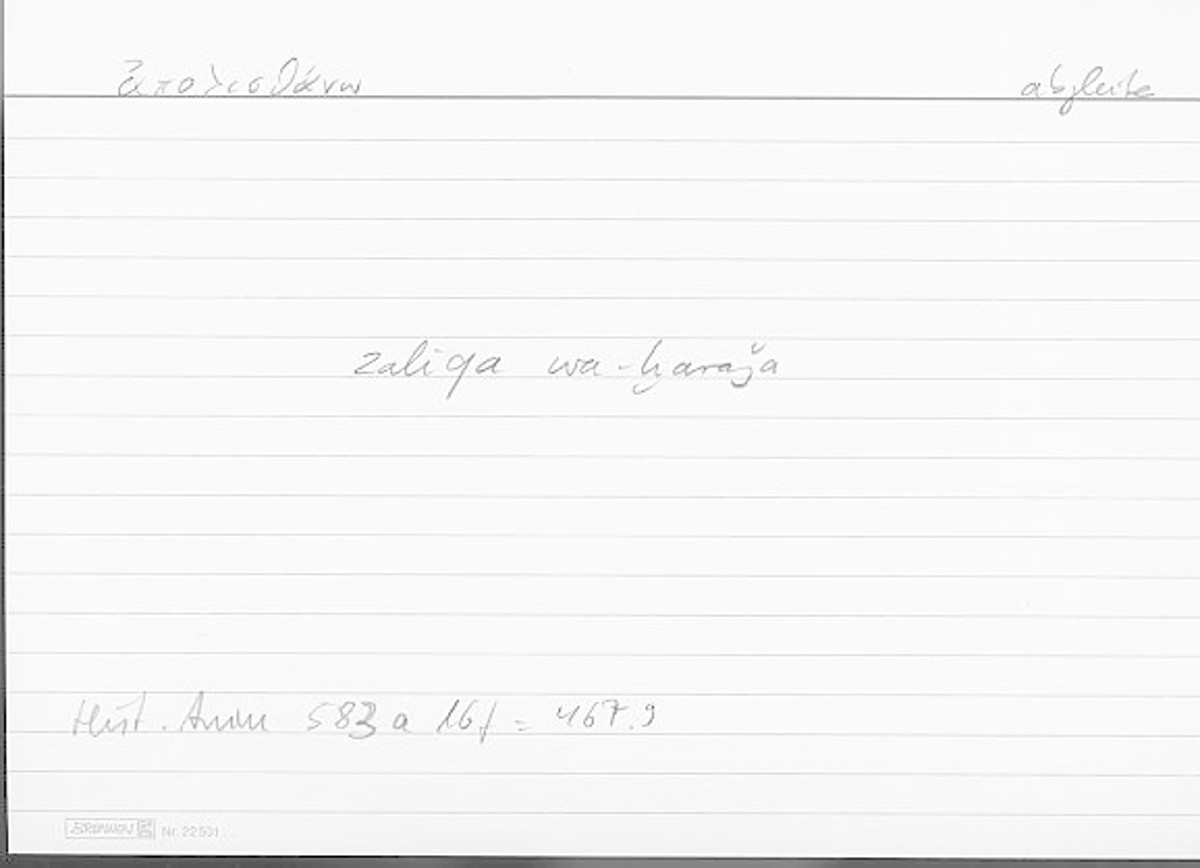 ἀπολισθάνω abgleite
zaliqa wa-ḫaraǧa
Hist. Anim 583 a 16f = 467.9
BRUNNEN Nr. 22 501